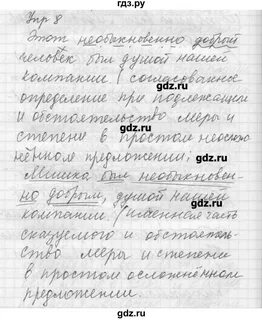 Упр 8
Этот необыкновенно добрый
человек был душой нашей
компании (согласованное
определение при подлежащем
и обстоятельство меры и
степени в простом неослож-
нённом предложении;
Мишка был необыкновен-
но добрым, душой нашей
компании. (именная часть
сказуемого и обстоятель-
ство меры и степени
в простом осложнённом
предложении.
gdz.ru
gdz.ru
gdz.ru
gdz.ru
gdz.ru
gdz.ru
gdz.ru